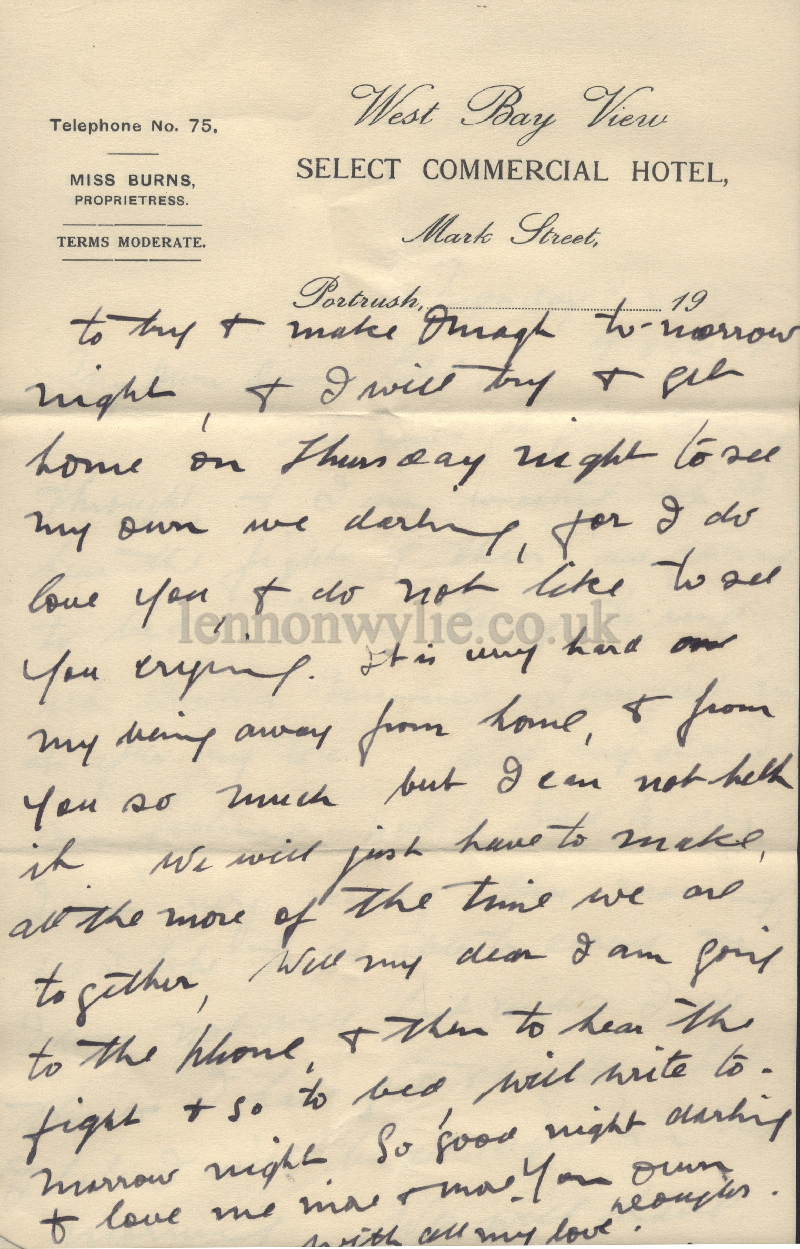 Telephone No. 75.
MISS BURNS,
PROPRIETRESS.
TERMS MODERATE.
West Bay View
SELECT COMMERCIAL HOTEL,
Mark Street,
Portrush, 19
to try & make Omagh to-morrow
night, & I will try & get
home on Thursday night to see
my own we darling, for I do
love you, & do not like to see
you crying. It is very hard on
my being away from home, & from
you so much but I can not help
it We will just have to make,
all the more of the time we are
together, Well my dear I am going
to the phone, & then to hear the
fight & so to bed, will write to-
morrow night So good night darling
& love me more & more. Your own
with all my love.
lennonwylie.co.uk